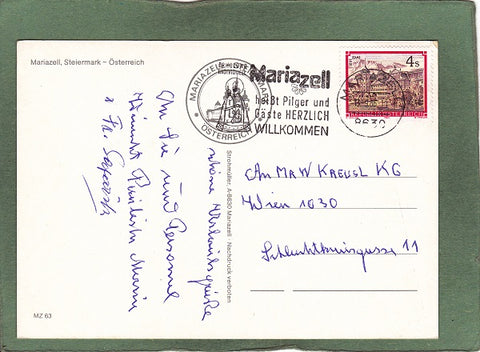 Mariazell, Steiermark – Österreich
MARIAZELL
ÖSTERREICH
Mariazell
heißt Pilger und
Gäste HERZLICH
WILLKOMMEN
4s
REPUBLIK ÖSTERREICH
8630
An MAW KREUSL KG
Wien 1030
Schlachthausgasse 11
schöne Urlaubsgrüße
An Sie und Personal
wünscht Familie
Strohmüller, A-8630 Mariazell Nachdruck verboten
MZ 63